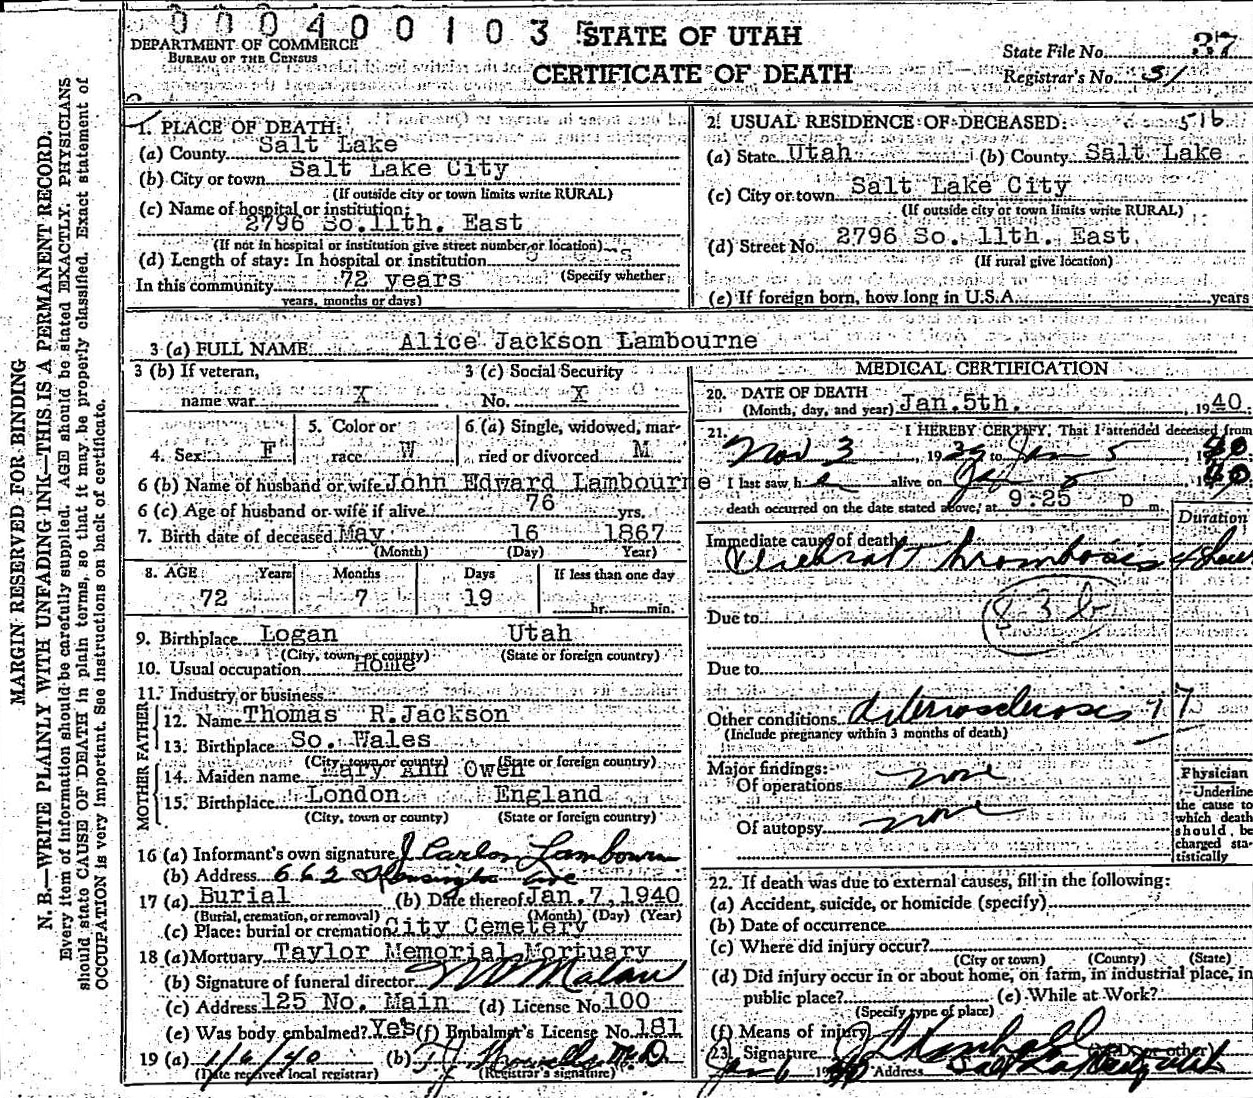 000400103
STATE OF UTAH
DEPARTMENT OF COMMERCE
BUREAU OF THE CENSUS
CERTIFICATE OF DEATH
State File No. 37
Registrar's No. 31
MARGIN RESERVED FOR BINDING
N. B.—WRITE PLAINLY WITH UNFADING INK—THIS IS A PERMANENT RECORD.
Every item of information should be carefully supplied. AGE should be stated EXACTLY. PHYSICIANS
should state CAUSE OF DEATH in plain terms, so that it may be properly classified. Exact statement of
OCCUPATION is very important. See instructions on back of certificate.
1. PLACE OF DEATH:
(a) County Salt Lake
(b) City or town Salt Lake City
(If outside city or town limits write RURAL)
(c) Name of hospital or institution:
2796 So.11th. East
(If not in hospital or institution give street number or location)
(d) Length of stay: In hospital or institution
(Specify whether
In this community 72 years
years, months or days)
2. USUAL RESIDENCE OF DECEASED: 516
(a) State Utah (b) County Salt Lake
(c) City or town Salt Lake City
(If outside city or town limits write RURAL)
(d) Street No. 2796 So. 11th. East
(If rural give location)
(e) If foreign born, how long in U.S.A. years
3 (a) FULL NAME Alice Jackson Lambourne
3 (b) If veteran, 3 (c) Social Security
name war X No. X
4. Sex F 5. Color or race W 6 (a) Single, widowed, married or divorced M
6 (b) Name of husband or wife John Edward Lambourne
6 (c) Age of husband or wife if alive 76 yrs.
7. Birth date of deceased May 16 1867
(Month) (Day) Year)
8. AGE Years Months Days If less than one day
72 7 19 hr. min.
9. Birthplace Logan Utah
(City, town or county) (State or foreign country)
10. Usual occupation Home
11. Industry or business
FATHER
12. Name Thomas R.Jackson
13. Birthplace So. Wales
(City, town or county) (State or foreign country)
MOTHER
14. Maiden name Mary Ann Owen
15. Birthplace London England
(City, town or county) (State or foreign country)
16 (a) Informant's own signature J Carlos Lambourn
(b) Address 662 Kensington Ave
17 (a) Burial (b) Date thereof Jan.7,1940
(Burial, cremation, or removal) (Month) (Day) (Year)
(c) Place: burial or cremation City Cemetery
18 (a) Mortuary Taylor Memorial Mortuary
(b) Signature of funeral director
(c) Address 125 No. Main (d) License No. 100
(e) Was body embalmed? Yes (f) Embalmer's License No. 181
19 (a) 1/6/40 (b) M.D.
(Date received local registrar) (Registrar's signature)
MEDICAL CERTIFICATION
20. DATE OF DEATH
(Month, day, and year) Jan.5th. , 1940.
21. I HEREBY CERTIFY, That I attended deceased from
Nov 3, 1939 to Jan 5, 1940.
I last saw her alive on Jan 5, 1940
death occurred on the date stated above, at 9:25 p m.
Duration
Immediate cause of death
Cerebral thrombosis 4 hours
83b
Due to
Due to
Other conditions Arteriosclerosis 97
(Include pregnancy within 3 months of death)
Major findings:
Of operations none
Of autopsy none
Physician
Underline
the cause to
which death
should be
charged sta-
tistically
22. If death was due to external causes, fill in the following:
(a) Accident, suicide, or homicide (specify)
(b) Date of occurrence
(c) Where did injury occur?
(City or town) (County) (State)
(d) Did injury occur in or about home, on farm, in industrial place, in
public place? (e) While at Work?
(Specify type of place)
(f) Means of injury
23. Signature (M.D. or other)
Jan 6 1940 Address Salt Lake City Utah